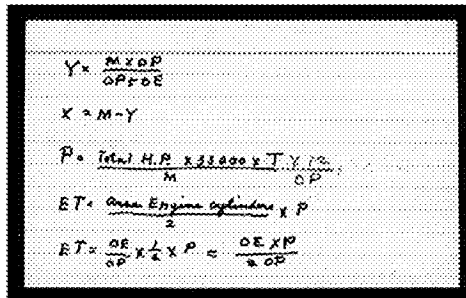 Y = M X OP / OP + OE
X = M - Y
P = Total H.P X 33000 X T X 12 / M OP
ET = area Engine cylinders / 2 X P
ET = OE / OP X 1 / 2 X P = OE X P / 2 OP